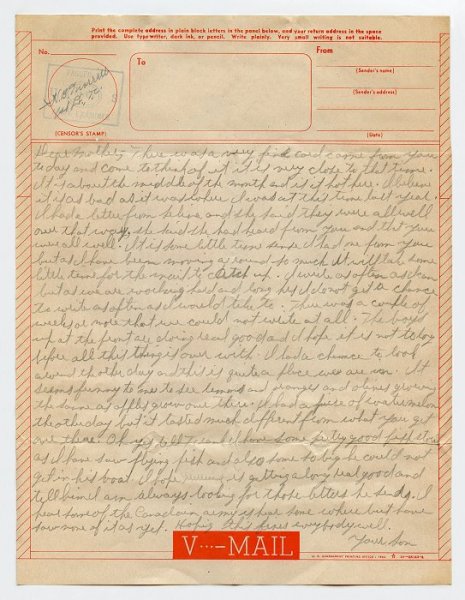 Print the complete address in plain block letters in the panel below, and your return address in the space
provided. Use typewriter, dark ink, or pencil. Write plainly. Very small writing is not suitable.
No.
To
From
(Sender's name)
(Sender's address)
(CENSOR'S STAMP)
(Date)
Dear Mother, There was a very fine card came from you
today and come to think of it it is very close to that time.
It is about the middle of the month and is it hot here. I believe
it is as bad as it was where I was at this time last year.
I had a letter from and she said they were all well
over that way. she said she had heard from you and that you
were all well. It is some little time sense I had one from you
but as I have been moving around so much it will take some
little time for the mail to catch up. I write as often as I can
but as we are working hard and long hrs I do not get a chance
to write as often as I would like to. There was a couple of
weeks or more that we could not write at all. The boys
up at the front are doing real good and I hope it is not to long
before all this thing is over with. I had a chance to look
around the other day and this is quite a place we are in. It
seems funny to me to see lemons and oranges and olives growing
the same as apples grow over there. I had a piece of watermelon
the other day but it tasted much different from what you get
over there. Oh yes tell I have some pretty good fish stories
as I have saw flying fish and also some so big he could not
get in his boat. I hope is getting along real good and
tell him I am always looking for those letters he sends. I
hear some of the Canadian army is here some where but have
saw none of it as yet. Hoping this finds everybody well.
Your Son
V···—MAIL
U. S. GOVERNMENT PRINTING OFFICE